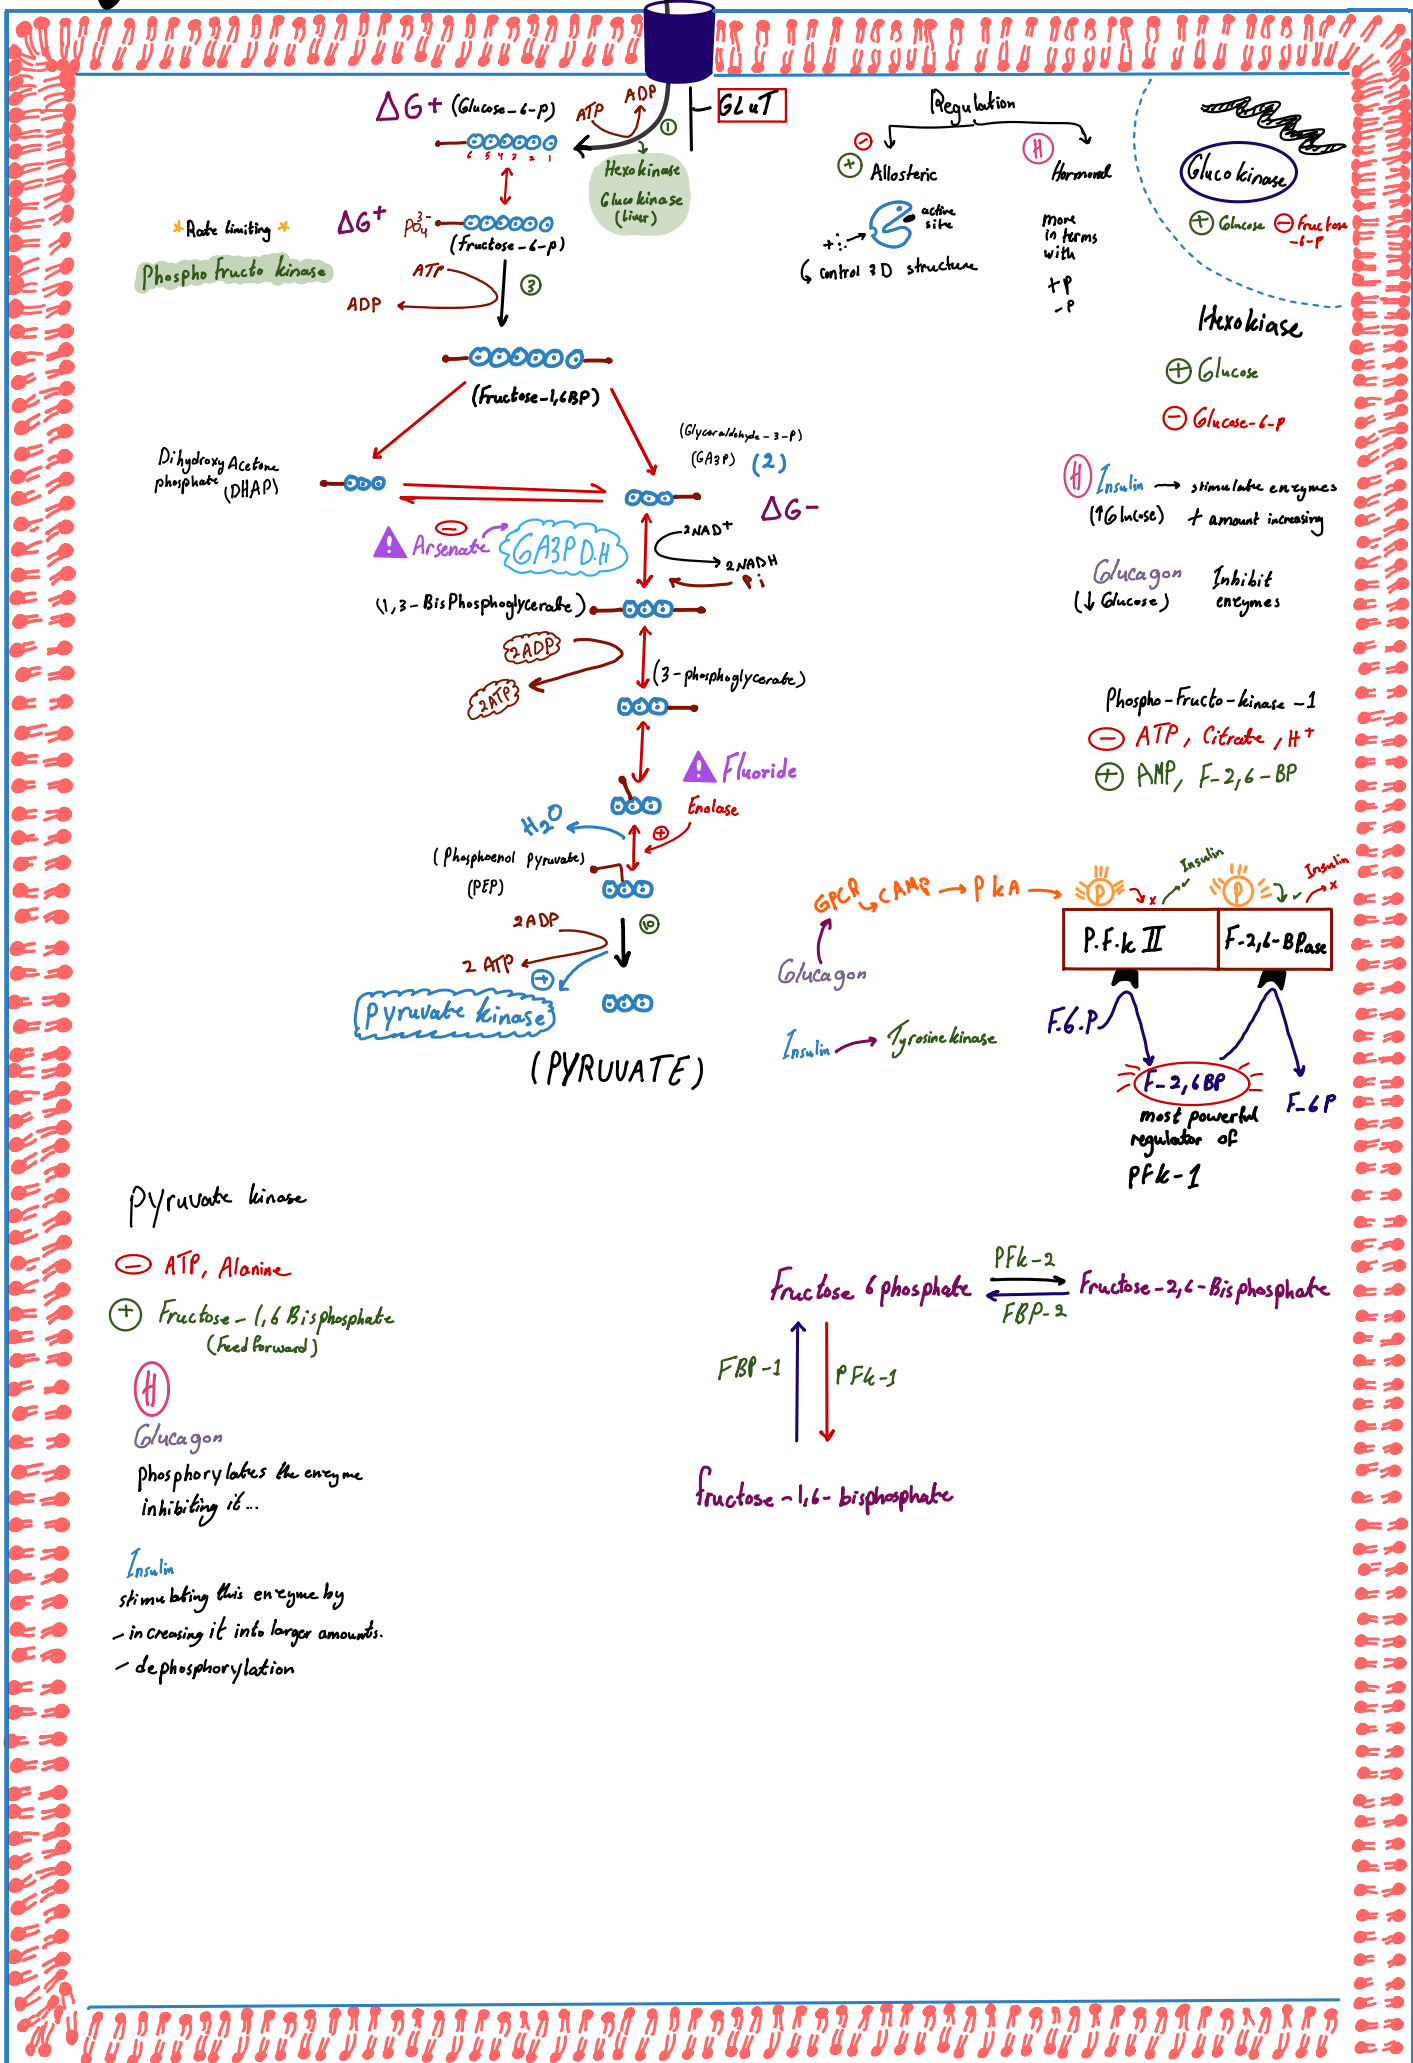 GLUT
ΔG+ (Glucose-6-p)
ATP
ADP
①
6 5 4 3 2 1
Hexokinase
Glucokinase
(Liver)
*Rate limiting*
Phospho fructo kinase
ΔG+
PO₄³⁻
(fructose-6-p)
ATP
ADP
③
(Fructose-1,6BP)
Dihydroxy Acetone
phosphate (DHAP)
(Glyceraldehyde-3-P)
(GA3P) (2)
ΔG-
⊖
! Arsenate
GA3P D.H
2NAD+
2NADH
Pi
(1,3-BisPhosphoglycerate)
2ADP
2ATP
(3-phosphoglycerate)
! Fluoride
Enolase
⊕
H₂O
(Phosphoenol pyruvate)
(PEP)
2ADP
2 ATP
⑩
⊕
Pyruvate kinase
(PYRUVATE)
Regulation
⊖
⊕ Allosteric
Ⓗ Hormonal
active
site
+
control 3D structure
more
in terms
with
+P
-P
Glucokinase
⊕ Glucose ⊖ Fructose
-6-P
Hexokiase
⊕ Glucose
⊖ Glucose-6-p
Ⓗ Insulin → stimulate enzymes
(↑Glucose) + amount increasing
Glucagon Inhibit
(↓ Glucose) enzymes
Phospho-Fructo-kinase-1
⊖ ATP, Citrate, H+
⊕ AMP, F-2,6-BP
Glucagon
GPCR → cAMP → PkA →
P x Insulin ✓
P ✓ Insulin x
P.F.k II
F-2,6-BP.ase
Insulin → Tyrosine kinase
F.6.P
F-2,6BP
F-6P
most powerful
regulator of
PFk-1
Pyruvate kinase
⊖ ATP, Alanine
⊕ Fructose-1,6 Bisphosphate
(Feed forward)
Ⓗ
Glucagon
phosphorylates the enzyme
inhibiting it...
Insulin
stimulating this enzyme by
- increasing it into larger amounts.
- dephosphorylation
PFk-2
fructose 6 phosphate
Fructose-2,6-Bisphosphate
FBP-2
FBP-1
PFk-1
fructose-1,6-bisphosphate